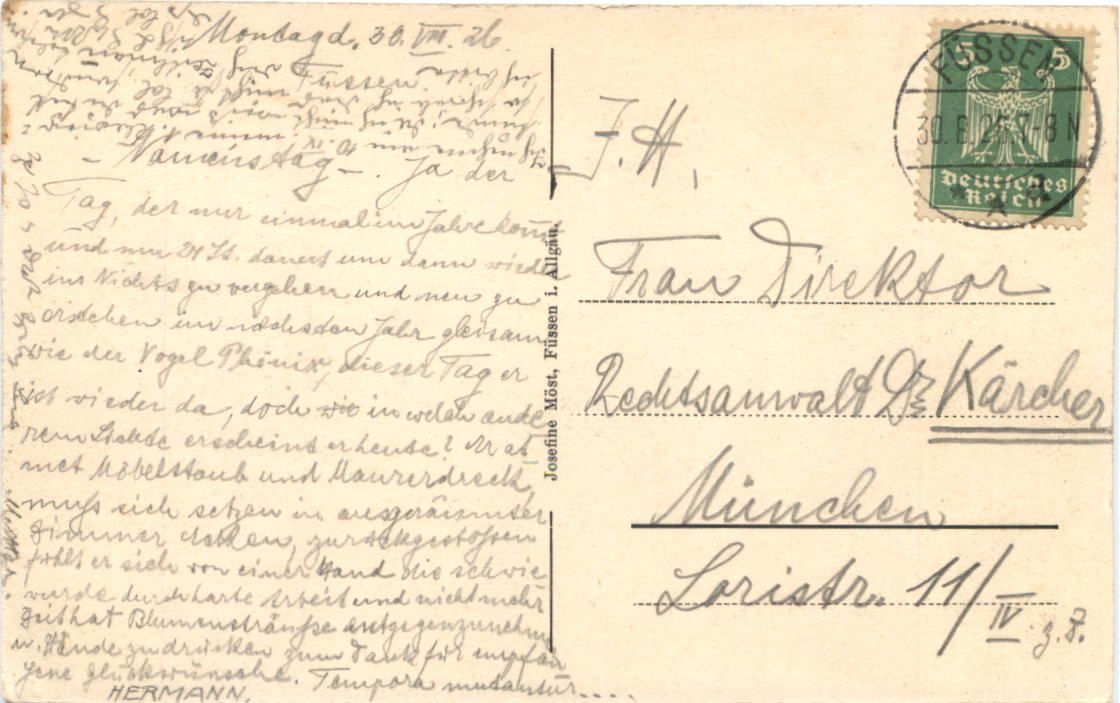 Montag d. 30. VIII. 26.
Füssen
– Namenstag –. Ja der
Tag, der nur einmal im Jahre kommt
und nur 24 St. dauert um dann wieder
ins Nichts zu vergehen und neu zu
erstehen im nächsten Jahr gleichsam
wie der Vogel Phönix, dieser Tag er
ist wieder da, doch wie in welch ande
rem Lichte erscheint er heute? Er at
met Möbelstaub und Maurerdreck,
muss sich setzen in ausgeräumter
Zimmer Ecken, zurückgestossen
fühlt er sich von einer Hand die schwie
wurde durch harte Arbeit und nicht mehr
Zeit hat Blumensträuße entgegenzunehmen
u. Hände zu drücken zum Dank für empfan
gene Glückwünsche. Tempora mutantur....
HERMANN.
Josefine Möst, Füssen i. Allgäu.
FÜSSEN
30.8.26.7-8 N
5 5
Deutsches
Reich
J. H.
Frau Direktor
Rechtsanwalt Dr Kärcher
München
Loristr. 11/IV
z. Z.